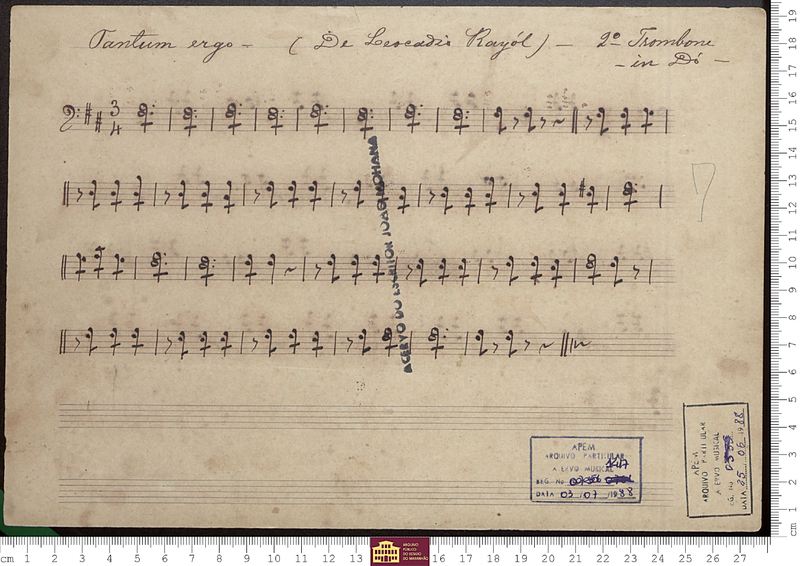 Tantum ergo - ( De Leocadio Rayól ) - 2º Trombone
- in Dó -
3
4
ACERVO DO ESCRITOR JOÃO MOHANA
APEM
ARQUIVO PARTICULAR
A ERVO MUSICAL
REG. No
DATA 03 / 07 / 1988
APEM
ARQUIVO PARTICULAR
A ERVO MUSICAL
DATA 25 06 1988
ARQUIVO
PÚBLICO
DO ESTADO
DO MARANHÃO
cm 1 2 3 4 5 6 7 8 9 10 11 12 13 16 17 18 19 20 21 22 23 24 25 26 27
cm 1 2 3 4 5 6 7 8 9 10 11 12 13 14 15 16 17 18 19